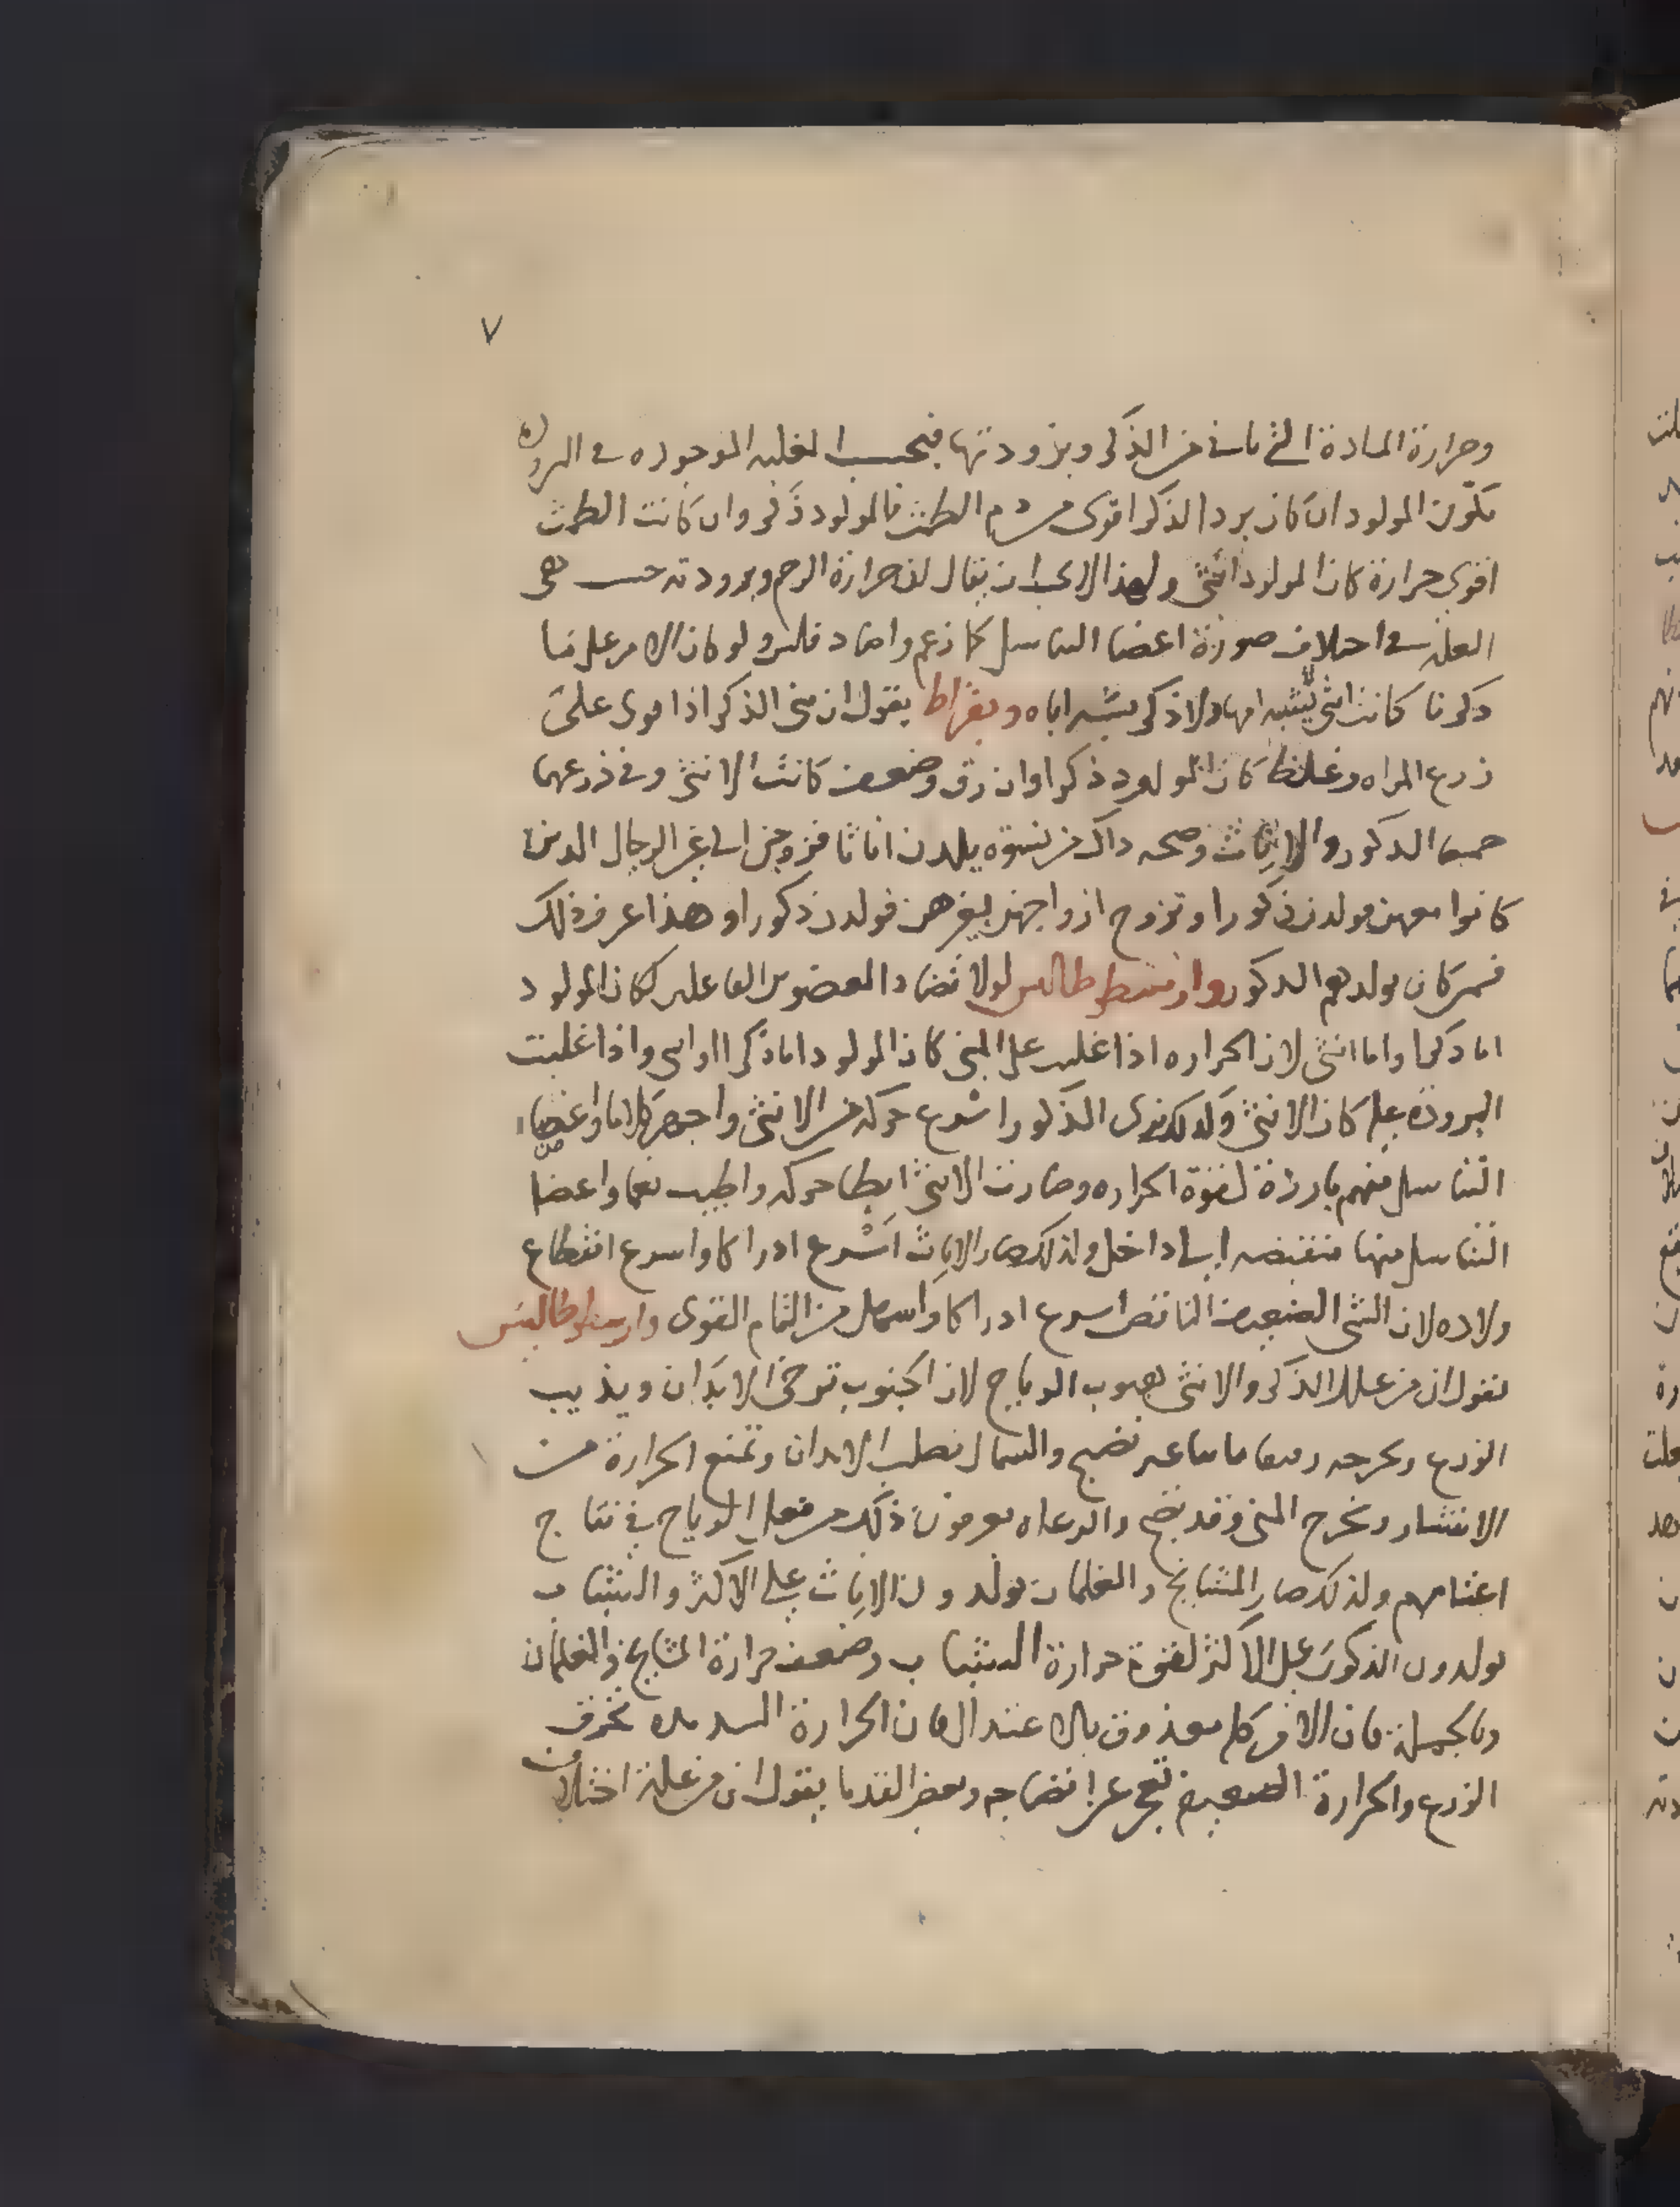 ٧
وحرارة المادة التي تاتي من الذكر وبرودتها فبحسب الغلبه الموجوده في البروده
تكون المولود ان كان برد الذكر اقوى من دم الطمث فالمولود ذكر وان كانت الطمث
اقوى حرارة كان المولود انثى ولهذا لا يجب ان يقال ان حرارة الرحم وبرودته حسب هي
العله في اختلاف صورة اعضا التناسل كما زعم ولو كان الامر على ما
ذكرنا كانت انثى تشبه امها ولا ذكر يشبه اباه وبقراط يقول ان مني الذكر اذا قوى على
زرع المراه وغلظ كان المولود ذكرا وان رق وضعف كانت الانثى وفي زرعهما
جميعا الذكور والاناث وصحه ذاك من نسوة يلدن اناثا فتزوجن الى غير الرجال الذين
كانوا معهن فولدن ذكورا وتزوج ازواجهن بغيرهن فولدن ذكورا وهذا عرف ذلك
فمن كان يولد لهم الذكور وارسطوطاليس لولا تضاد العضوين الفاعلين لكان المولود
اما ذكرا واما انثى لان الحراره اذا غلبت على المني كان المولود اما ذكرا او انثى واذا غلبت
البرودة عليه كان الانثى ولذلك نرى الذكور اسرع حركه من الانثى واجهر كلاما واعضاء
التناسل منهم بارزة لقوة الحراره وصارت الانثى ابطا حركه واطيب نغما واعضا
التناسل منها منقبضه الى داخل ولذلك صار الاناث اسرع ادراكا واسرع انقطاع
ولاده لان الشي الضعيف الناقص اسرع ادراكا من التمام القوى وارسطوطاليس
يقول ان من علل الذكر والانثى هبوب الرياح لان الجنوب ترخي الابدان ويذيب
الزرع ويخرجه غير نضيج والشمال تصلب الابدان وتمنع الحرارة من
الانتشار ويخرج المني وقد نضج والرعاه يعرفون ذلك من فعل الرياح في نتاج
اغنامهم ولذلك صار المشايخ والغلمان يولدون الاناث على الاكثر والشباب
يولدون الذكور على الاكثر لقوة حرارة الشباب وضعف حرارة المشايخ والغلمان
وبالجملة فان الامر كله معذوق بالاعتدال فان الحرارة الشديده تحرق
الزرع والحرارة الضعيفه تعجز عن انضاجه وبعض القدما يقول ان من علة اختلاف